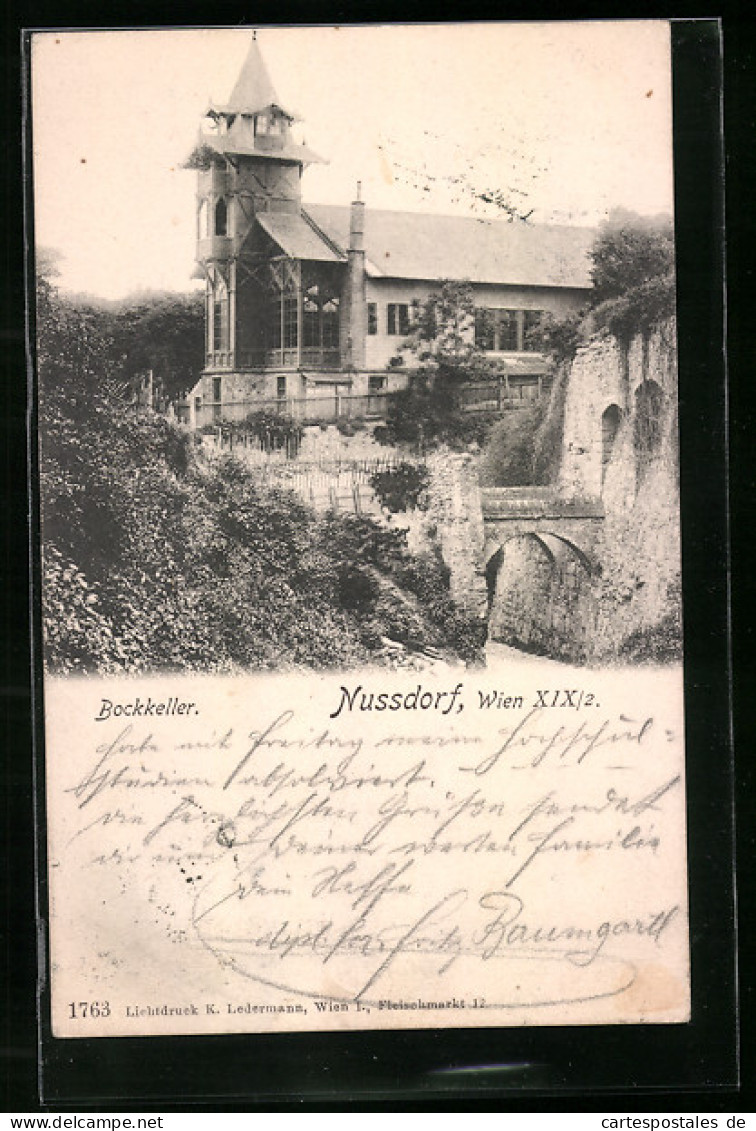 Bockkeller. Nussdorf, Wien XIX/2.
Habe mit Freitag meine Hochschul=
studien absolviert.
die herzlichsten Grüße sendet
dir und Deiner werten Familie
Dein Neffe
dipl. Ing. Fritz Baumgartl
1763 Lichtdruck K. Ledermann, Wien I., Fleischmarkt 12.
cartespostales.de